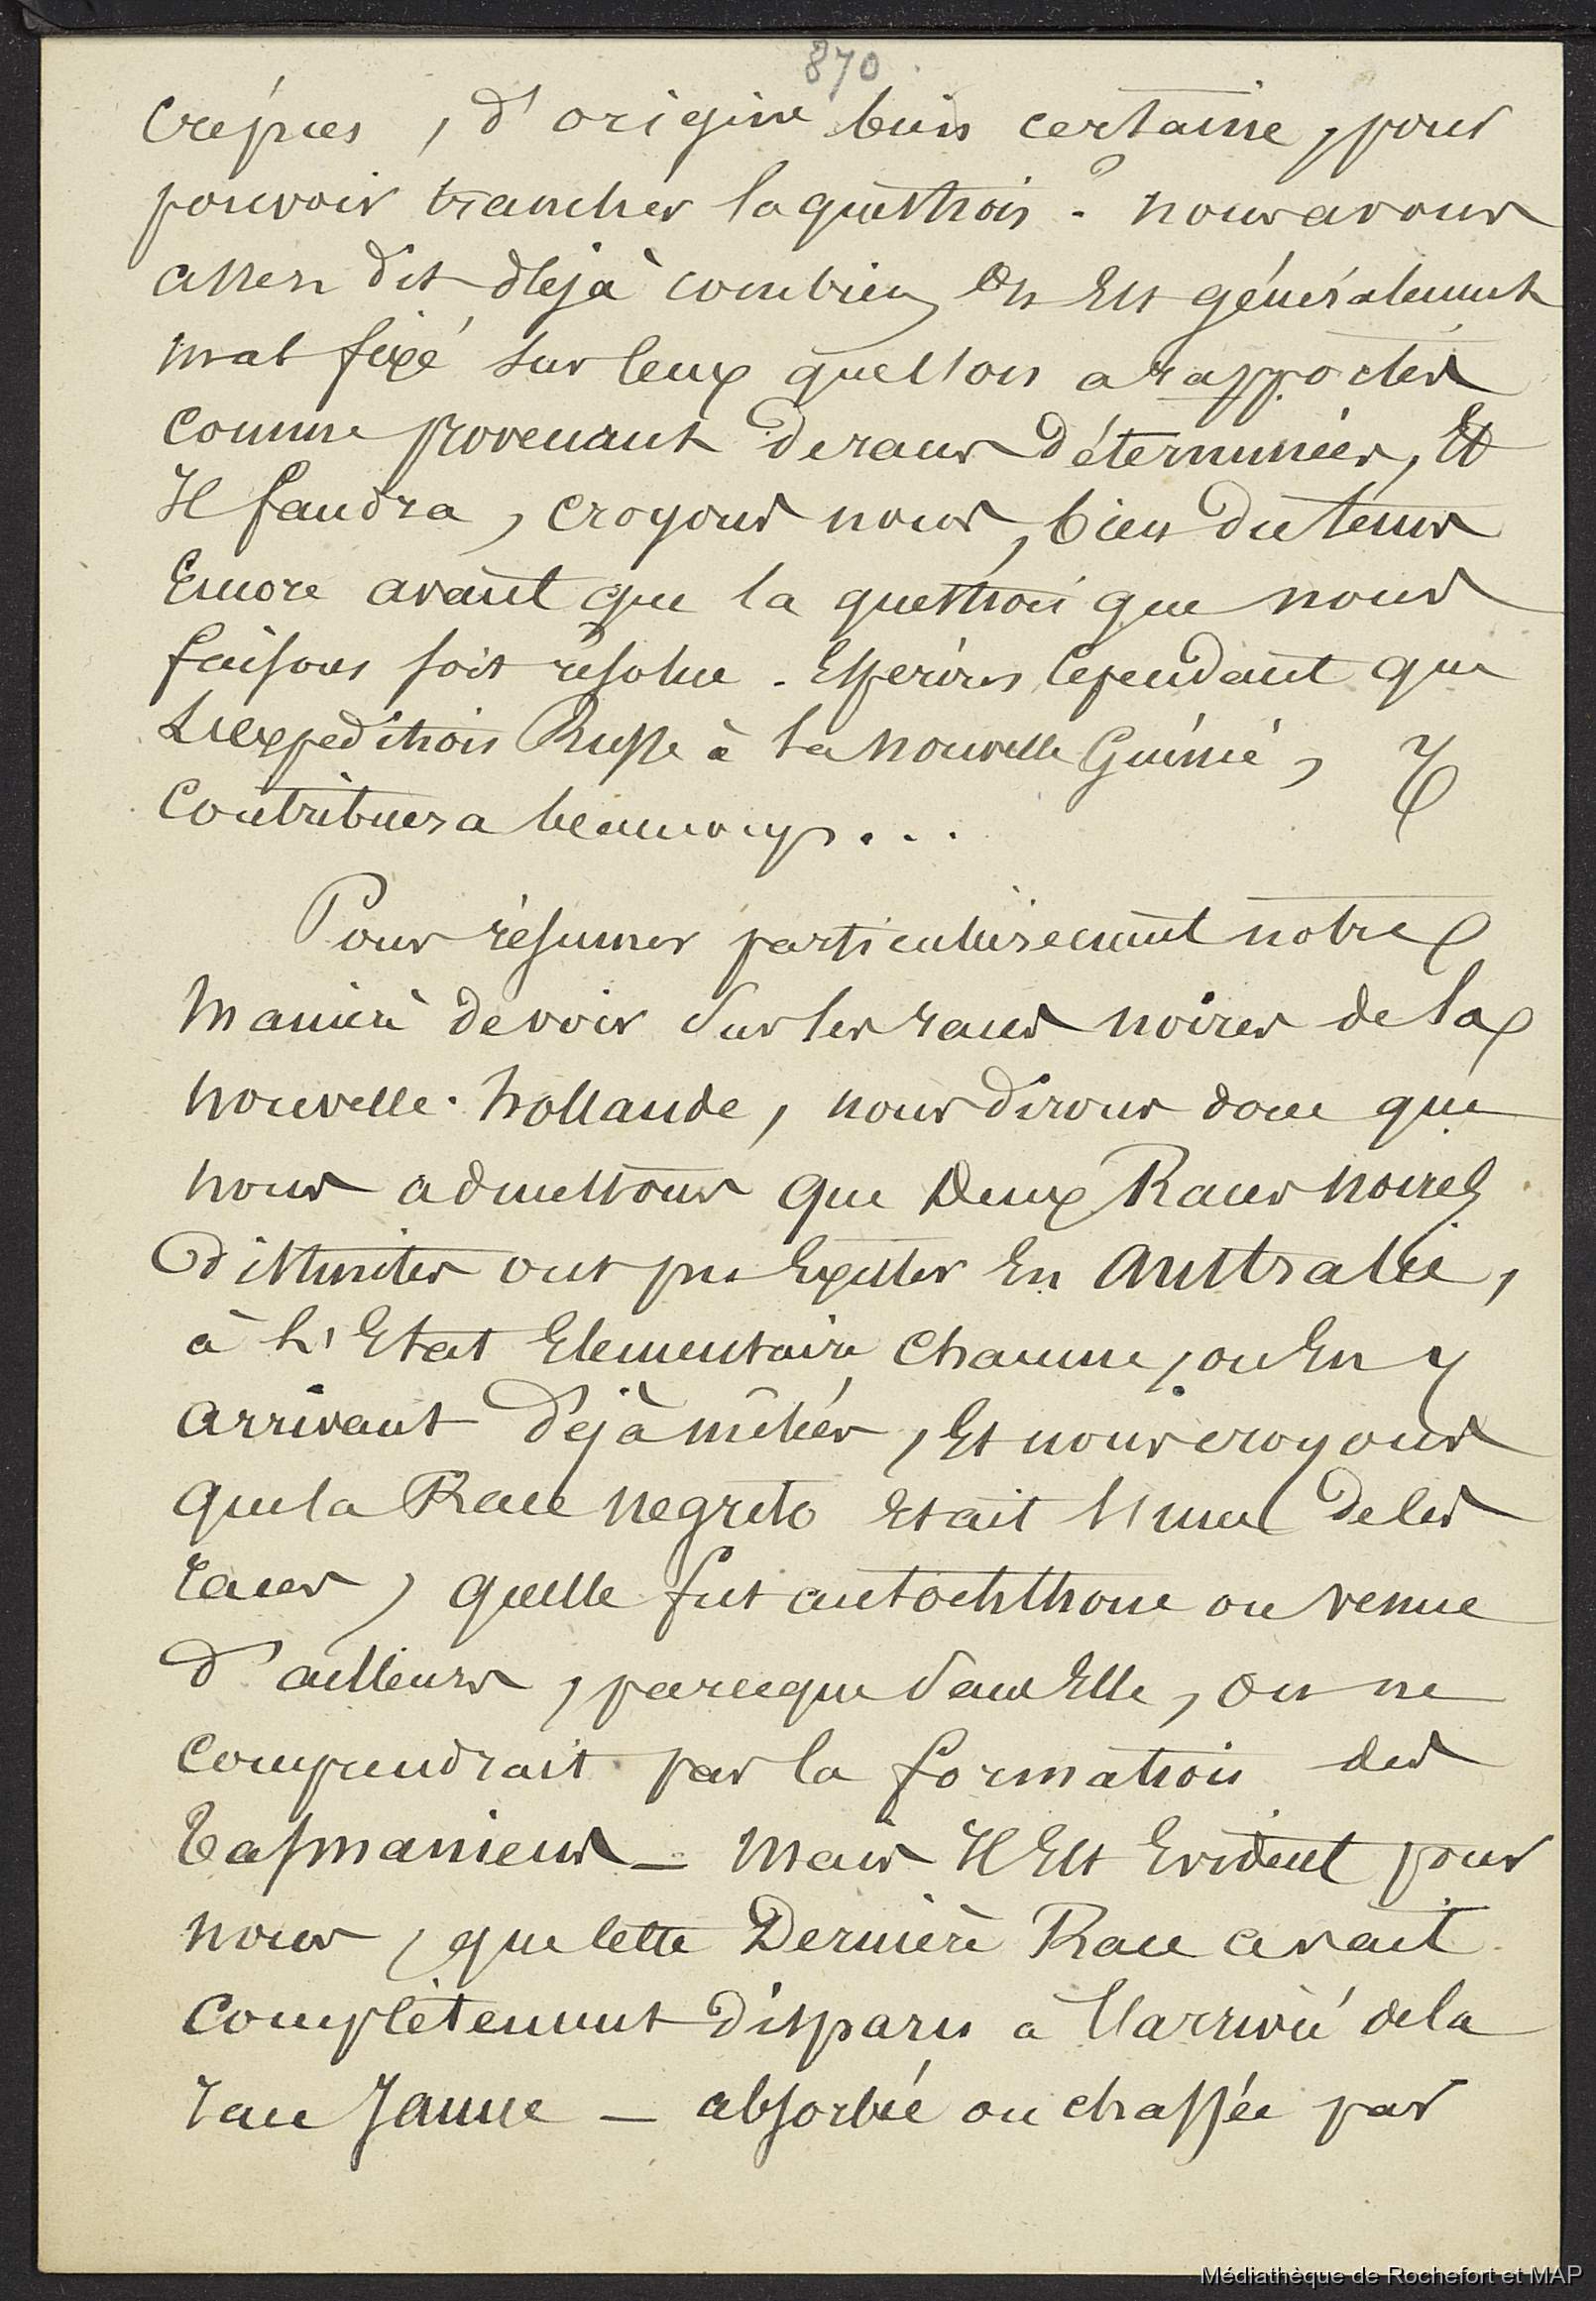 870
Crépues, d'origine bien certaine, pour
pouvoir trancher la question. nous avons
assez dit déjà combien on Est généralement
mal fixé sur ceux que l'on a rapportés
comme provenant de races Déterminées, Et
Il faudra, croyons nous, bien du tems
Encore avant que la question que nous
faisons soit résolue. Espérons Cependant que
L'expedition Russe à la Nouvelle Guinée,
Contribuera beaucoup...
Pour résumer particulièrement notre
Manière de voir Sur les races noires de la
Nouvelle-hollande, nous dirons donc que
nous admettons que Deux Races noires
Distinctes ont pu Exister En Australie,
à L'Etat Elementaire Chacune, ou En y
arrivant Déjà métiés, Et nous croyons
que la Race Negrito Etait l'une de ces
races, quelle fut autochthone ou venue
d'ailleurs, parceque Sans Elle, on ne
Comprendrait pas la formation des
Tasmaniens — Mais Il Est Evident pour
nous, que cette Dernière Race avait
Complètement Disparu à l'arrivée de la
race Jaune — absorbée ou chassée par
Médiathèque de Rochefort et MAP